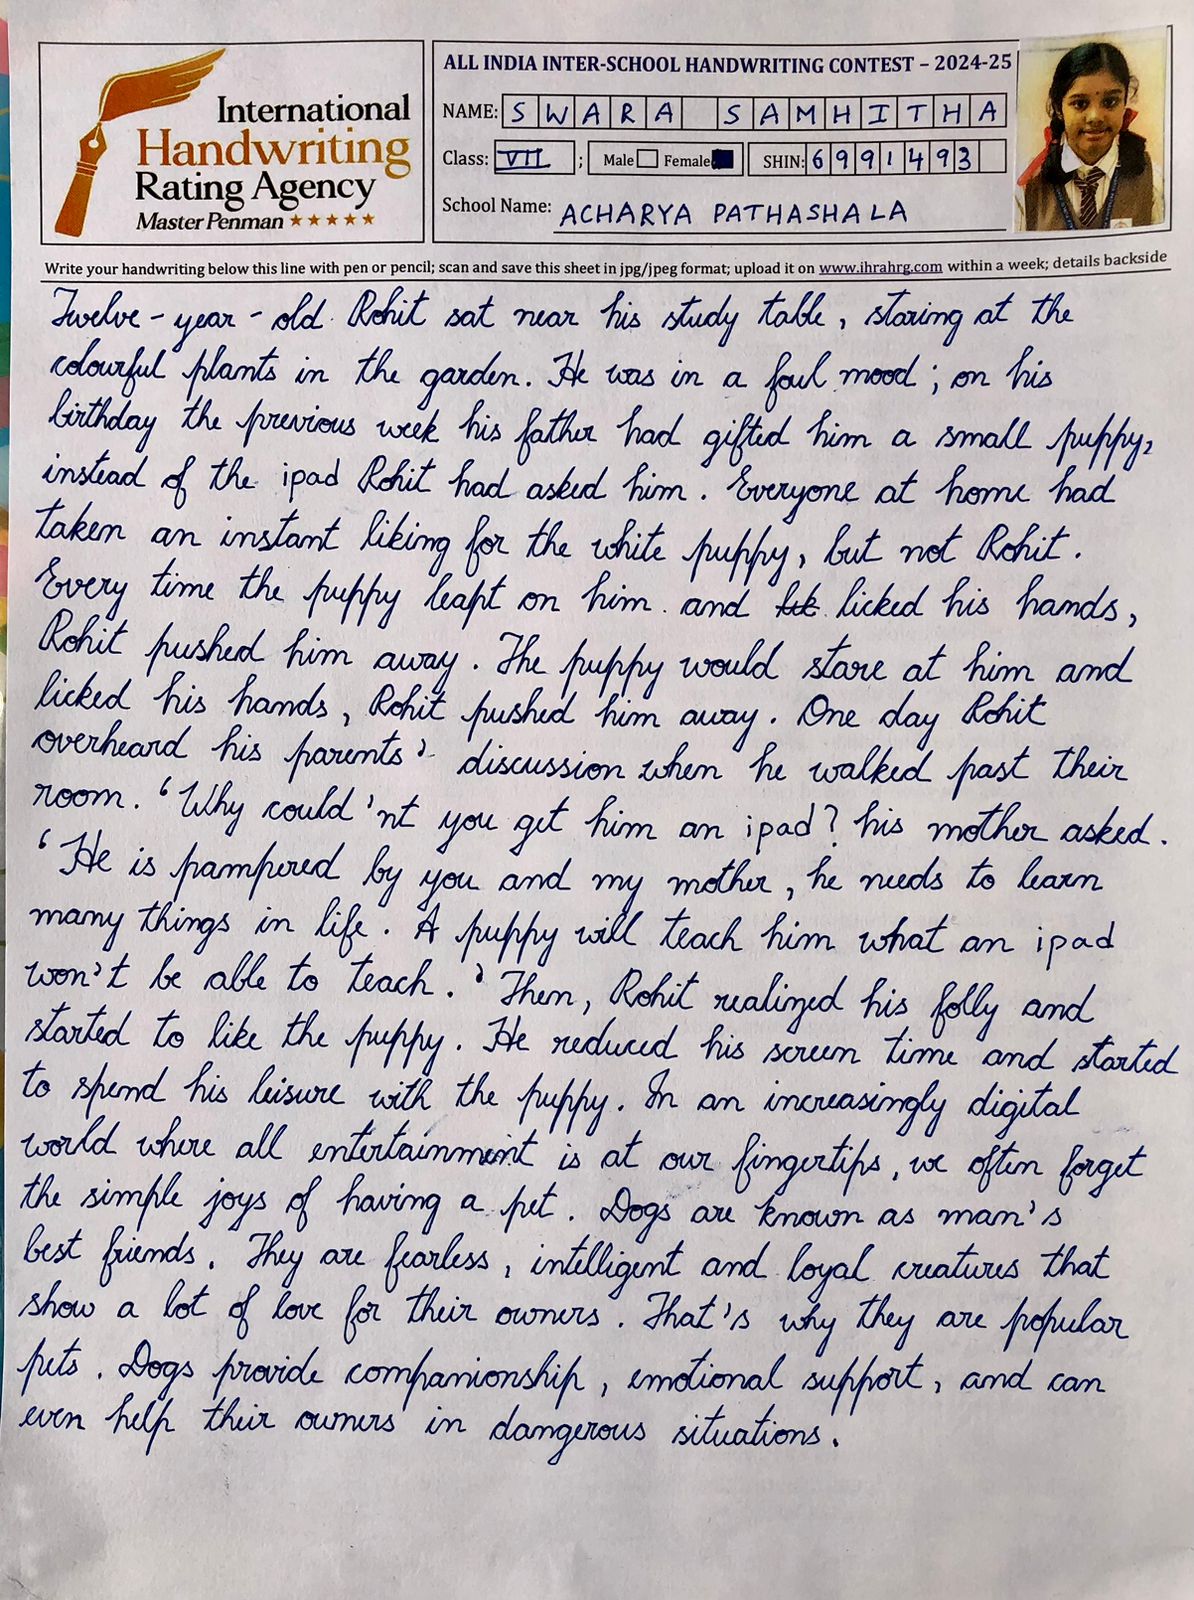 International
Handwriting
Rating Agency
Master Penman ★★★★★
ALL INDIA INTER-SCHOOL HANDWRITING CONTEST – 2024-25
NAME: SWARA SAMHITHA
Class: VII ; Male Female SHIN: 6991493
School Name: ACHARYA PATHASHALA
Write your handwriting below this line with pen or pencil; scan and save this sheet in jpg/jpeg format; upload it on www.ihrahrg.com within a week; details backside
Twelve-year-old Rohit sat near his study table, staring at the
colourful plants in the garden. He was in a foul mood; on his
birthday the previous week his father had gifted him a small puppy,
instead of the ipad Rohit had asked him. Everyone at home had
taken an instant liking for the white puppy, but not Rohit.
Every time the puppy leapt on him and licked his hands,
Rohit pushed him away. The puppy would stare at him and
licked his hands, Rohit pushed him away. One day Rohit
overheard his parents' discussion when he walked past their
room. 'Why could'nt you get him an ipad? his mother asked.
'He is pampered by you and my mother, he needs to learn
many things in life. A puppy will teach him what an ipad
won't be able to teach.' Then, Rohit realized his folly and
started to like the puppy. He reduced his screen time and started
to spend his leisure with the puppy. In an increasingly digital
world where all entertainment is at our fingertips, we often forget
the simple joys of having a pet. Dogs are known as man's
best friends. They are fearless, intelligent and loyal creatures that
show a lot of love for their owners. That's why they are popular
pets. Dogs provide companionship, emotional support, and can
even help their owners in dangerous situations.